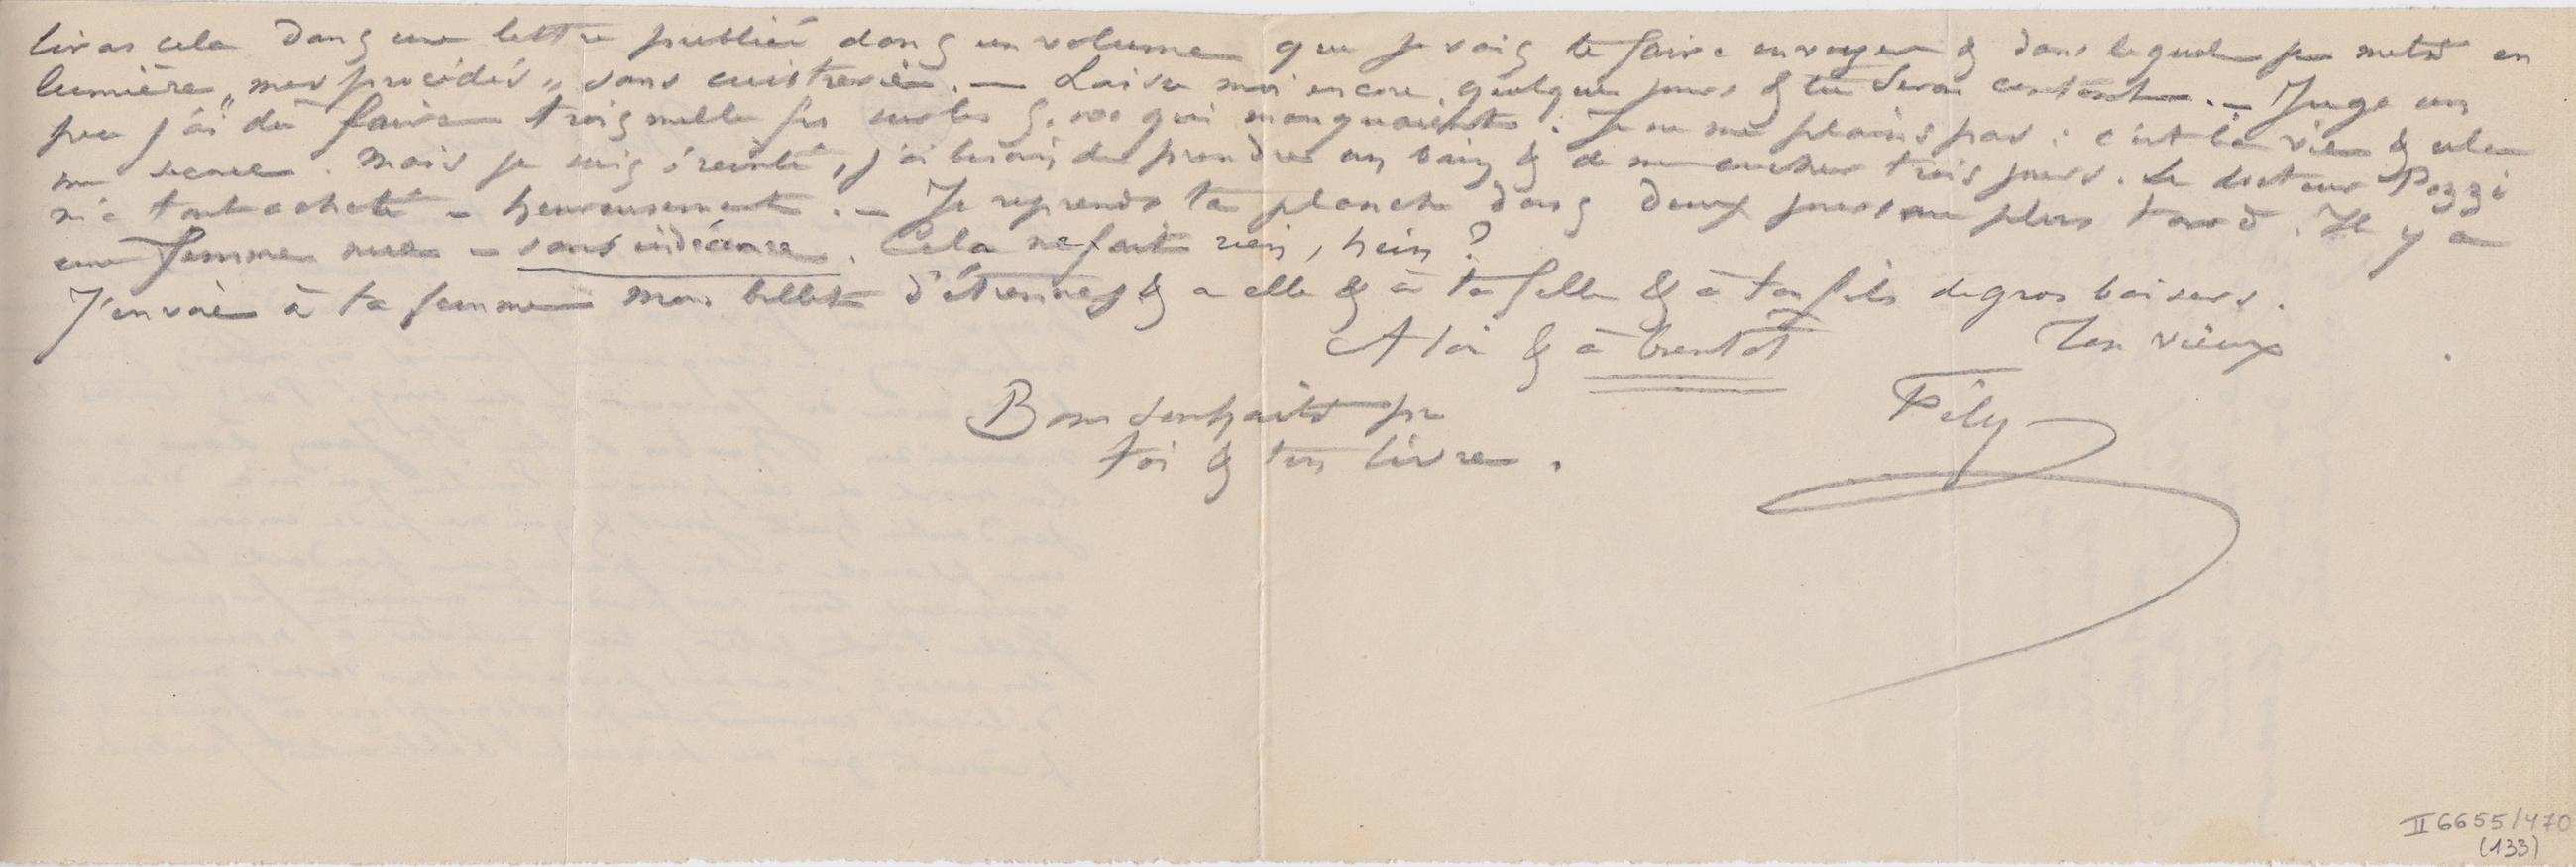 liras cela dans une lettre publiée dans un volume que je vais te faire envoyer & dans lequel je mets en
lumière „mes procédés" sans cuistrerie. — Laisse moi encore quelques jours & tu seras content. — Juge un
peu j'ai dû faire trois mille frs sur les 5.000 qui manquaient. Je ne me plains pas : c'est la vie & cela
me . Mais je suis éreinté, j'ai besoin de prendre un bain & de me coucher trois jours. Le docteur Pozzi
m'a tout acheté — heureusement. — Je reprends ta planche dans deux jours au plus tard. Il y a
une femme nue — sans indécence. Cela ne fait rien, hein ?
J'envoie à ta femme mon billet d'étrennes & a elle & à ta fille & à ton fils de gros baisers.
A toi & à bientôt Ton vieux
Bons souhaits pr
toi & ton livre.
Fély
II 6655/470
(133)